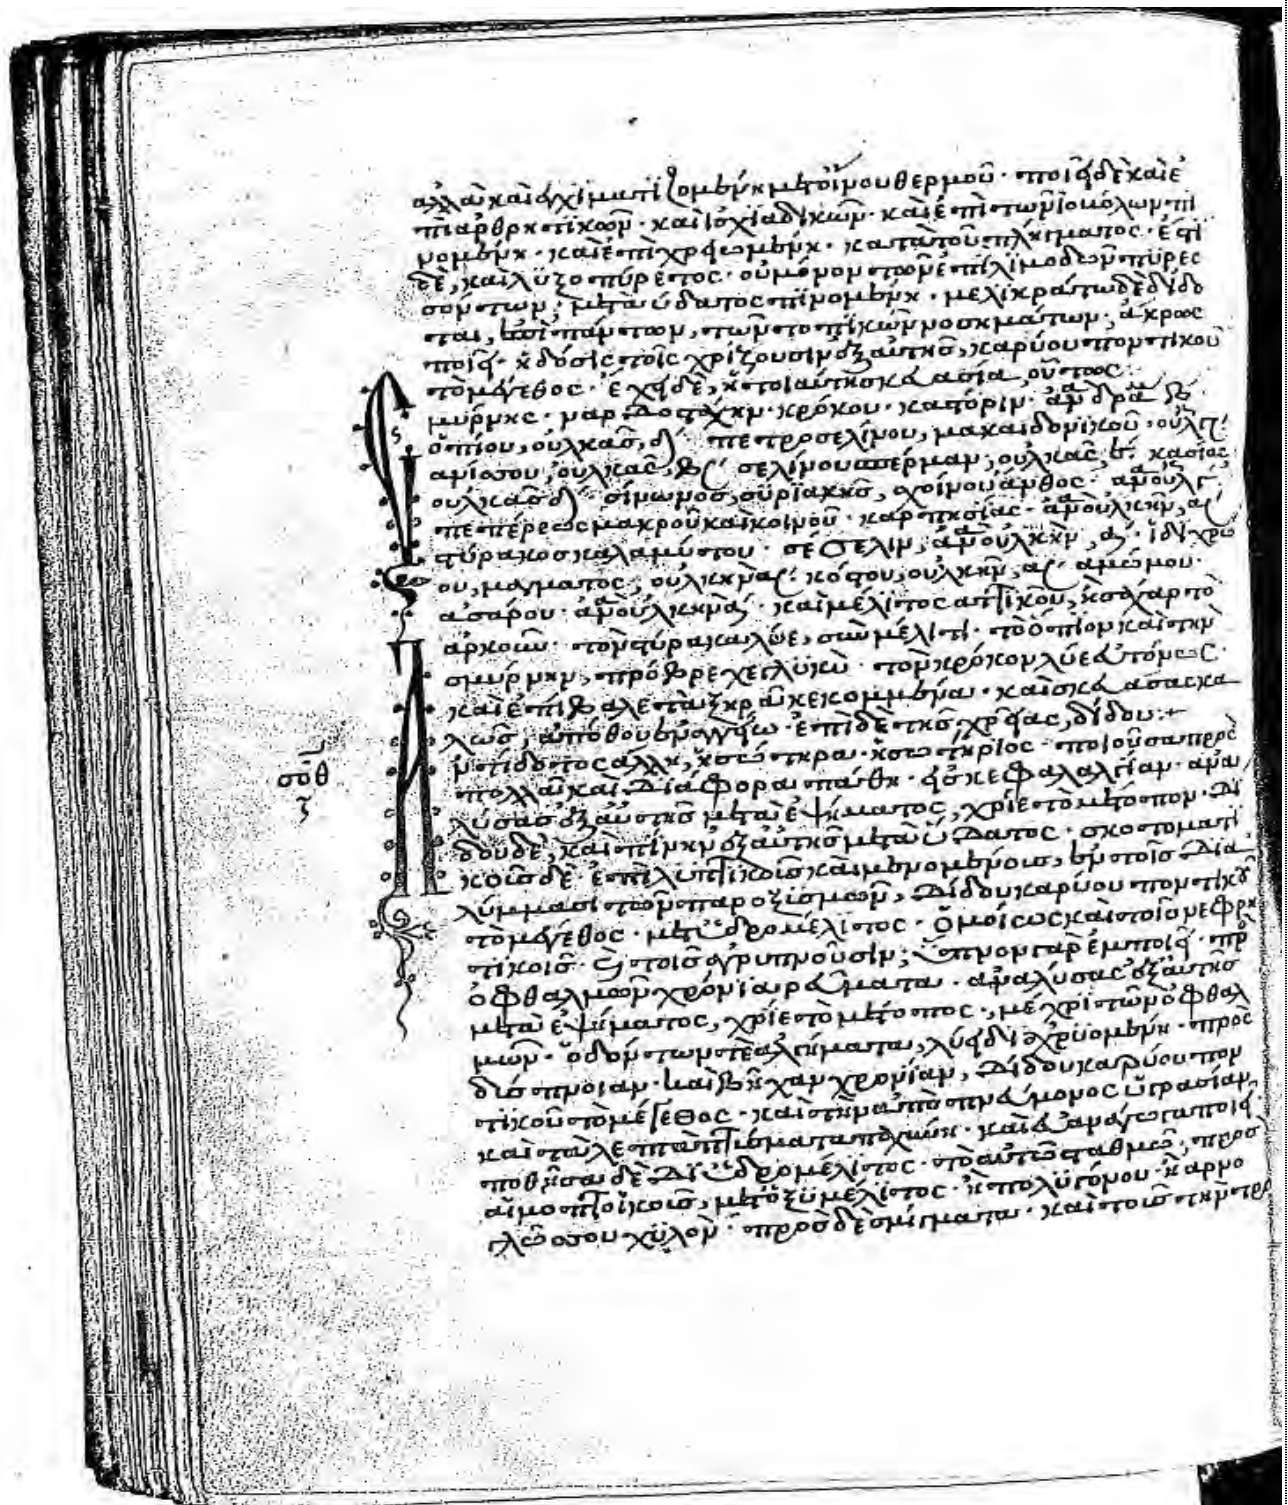 ἀλλὰ καὶ ἐγχυματιζομένη μετ οἴνου θερμοῦ · ποιεῖ δὲ καὶ ἐ
πὶ ἀρθρητικῶν · καὶ ἰσχιαδικῶν · καὶ ἐπὶ τῶν ἰοβόλων πι
νομένη · καὶ ἐπιχρεωμένη · κατὰ τοῦ πλήγματος · ἔστι
δὲ, καὶ λυζοπύρετος · οὐ μόνον τῶν ἐπὶ λιμοδῶν πυρες
σόντων; μετὰ ὕδατος πινομένη · μελικράτω δὲ δίδο
ται, ἐπὶ πάντων, τῶν τοπικῶν νοσημάτων, ἄκρως
ποιεῖ · ἡ δόσις τοῖς χρίζουσιν ἐξ αὐτῆς, καρύου ποντικοῦ
τὸ μέγεθος · ἔχει δὲ, ἡ τοιαύτη σκευασία οὕτως :
μύρνης · ναρδοστάχην · κρόκου · καστόριν · ἀνδρα
ὀπίου, οὐλκας, δ πετροσελίνου, μακαιδονικοῦ · οὐλ
ἀνίσσου, οὐλκας, σελίνου σπέρμαν; οὐλκας, β κασίας
οὐλκας δ σίνωνος, συριακῆς, σχοίνου ἄνθος · ἀν οὐλ
πεπέρεως μακροῦ καὶ κοινοῦ · καρπησίας · ἀν οὐλκην, α
στύρακος καλαμύντου · σέσελιν, ἀν οὐλκὴν, α · ἰδιχρω
ου, μαγματος, οὐλκὴν α · κόστου, οὐλκὴν, α · ἀμώμου ·
ἀσάρου · ἀν οὐλκὴν α · καὶ μέλιτος ἀττικοῦ, ἡσσχαρ τὸ
ἀρκοῦν · τὸν στύρακα λύε, σὺν μέλιτι · τὸ ὄπιον καὶ τὴν
σμύρνην, πρόβρεχε γλυκῦ · τὸν κρόκον λύε εὐτόνως ·
καὶ ἐπίβαλε τὰ ξηρὰ κεκομμένα · καὶ σκευάσας κα
λῶς, ἀπόθου ἐν ἀγγείω · ἐπὶ δὲ τῆς χρείας, δίδου :+
Ἀντίδοτος ἄλλη, ἡ σώτηρα · ἡ σωτήριος · ποιοῦσα πρὸς
πολλὰ καὶ διάφορα πάθη · εἰς κεφαλαλγίαν · ἀνα
λύσας ἐξ αὐτῆς μετὰ ἑψήματος, χρίε τὸ μέτοπον · δι
δου δὲ, καὶ πίνην ἐξ αὐτῆς μετὰ ὕδατος · σκοτοματι
κοῖς δὲ ἐπιλυπτικοῖς καὶ μενομένοις, ἐν τοῖς δια
λύμμασι τῶν παροξισμῶν, δίδου καρύου ποντικοῦ
τὸ μέγεθος · μετ ὑδρομέλιτος · ὁμοίως καὶ τοῖς νεφρη
τικοῖς · καὶ τοῖς ἀγρυπνοῦσιν; ὕπνον γὰρ ἐμποιεῖ · πρ
ὀφθαλμῶν χρόνια ρεύματα · ἀναλύσας ἐξ αὐτῆς
μετὰ ἑψήματος, χρίε τὸ μέτοπος, μέχρι τῶν ὀφθαλ
μῶν · ὀδόντων τὲ ἀλγήματα, λύει διαχριομένη · πρὸς
δίσπνοιαν · καὶ βῆχαν χρονίαν, δίδου καρύου πον
τικοῦ τὸ μέγεθος · καὶ τὴν ἀπὸ πνεύμονος ὑγρασίαν
καὶ τὰ λεπτὰ πτίσματα παχύνη · καὶ εὐανάγωγα ποιεῖ ·
ποθῆσα δὲ δι ὑδρομέλιτος · τὸ αὐτὸ σταθμῶ · πρὸς
αἱμοπτοϊκοῖς, μετ ὀξυμέλιτος · ἢ πολυγόνου · ἢ ἀρνο
γλώσσου χυλὸν · πρὸς δὲ σμίγματα · καὶ τοῖς τὴν
σοθ
ζ